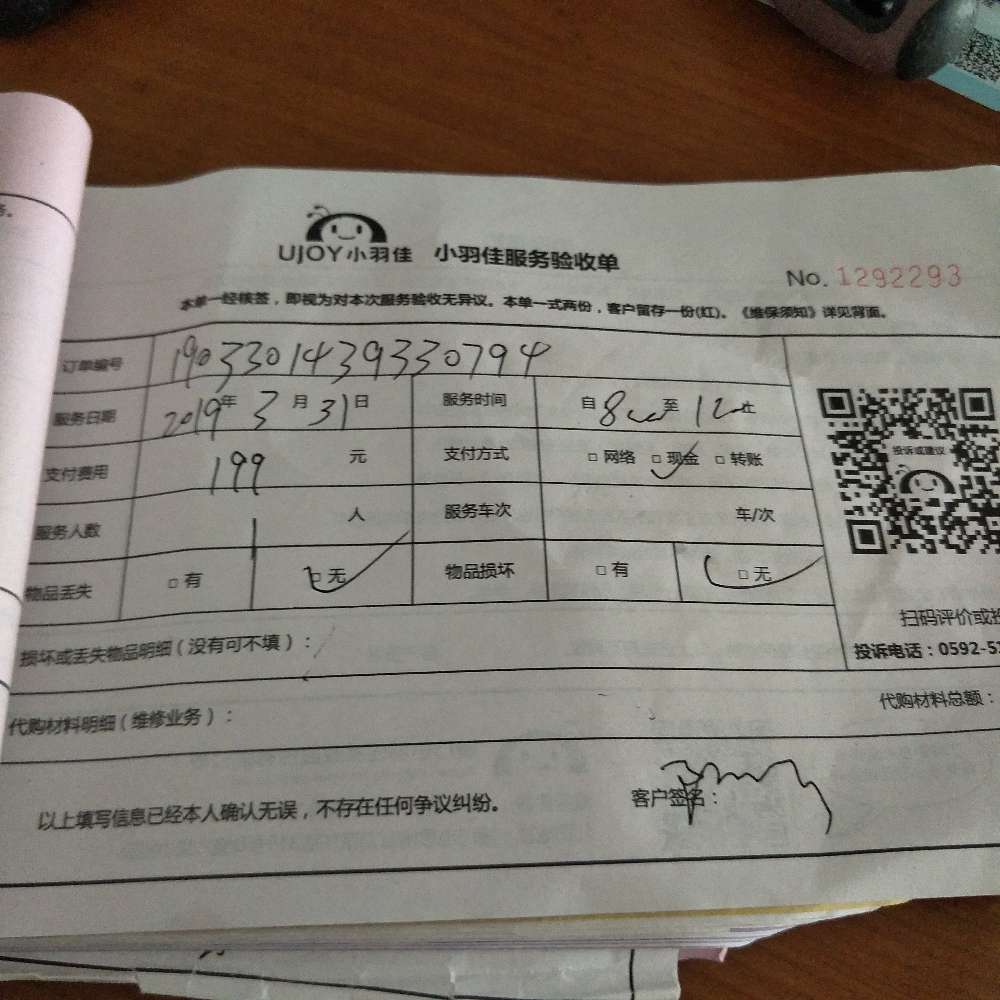 UJOY小羽佳 小羽佳服务验收单
No. 1292293
本单一经核签，即视为对本次服务验收无异议。本单一式两份，客户留存一份(红)。《维保须知》详见背面。
订单编号 19033014393330794
服务日期 2019年 3月 31日 服务时间 自 8 至 12
支付费用 199 元 支付方式 □ 网络 □ 现金 □ 转账
服务人数 1 人 服务车次 车/次
物品丢失 □ 有 □ 无 物品损坏 □ 有 □ 无
投诉或建议
扫码评价或投
投诉电话：0592-5
损坏或丢失物品明细（没有可不填）：
代购材料明细（维修业务）：
代购材料总额：
以上填写信息已经本人确认无误，不存在任何争议纠纷。
客户签名：